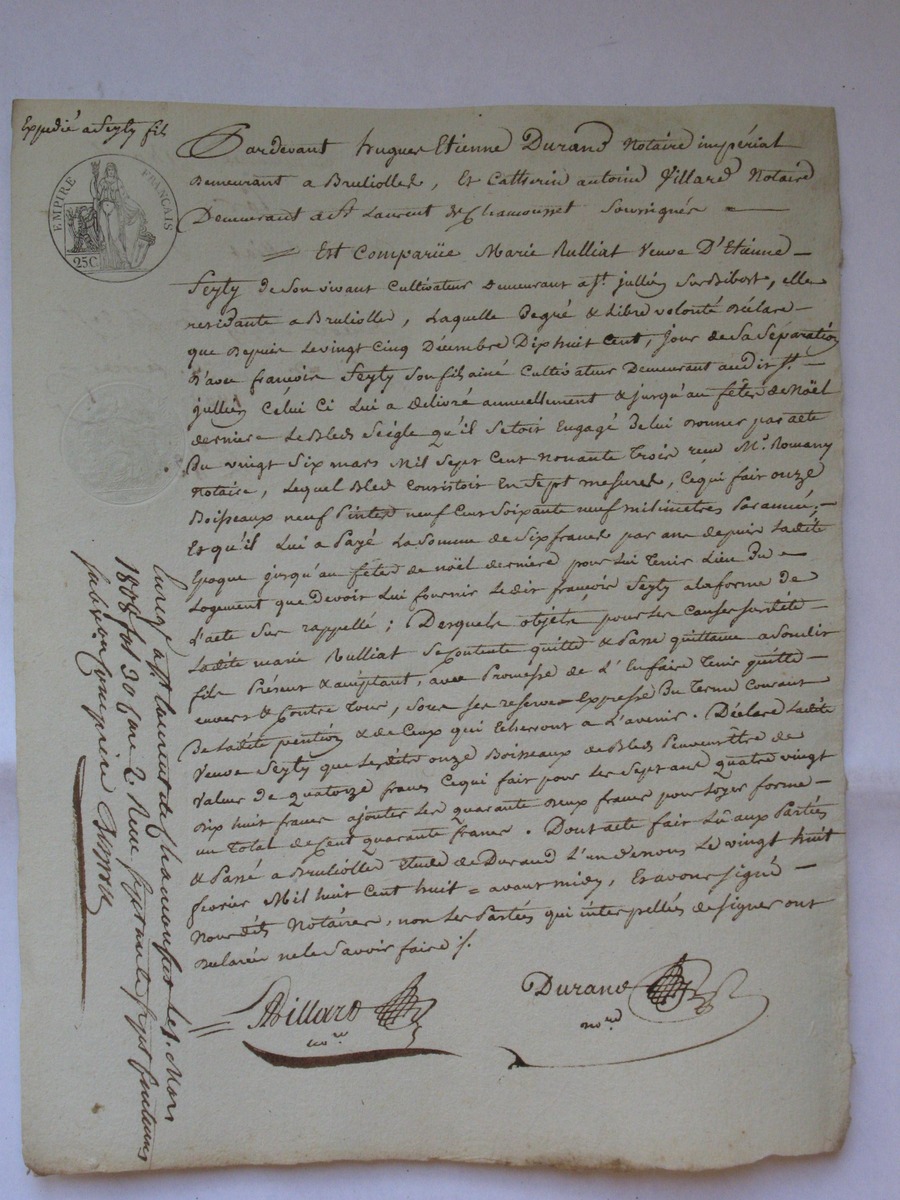 Expedié a Seyty fils
EMPIRE FRANÇAIS
25 C.
Pardevant hugues Etienne Durand Notaire impérial
Demeurant a Bruliolles, Et Catherin antoine Villard Notaire
Demeurant a St. Laurent de Chamousset Soussignés
Est Comparüe Marie Rulliat Veuve D'Etienne
Seyty de Son vivant Cultivateur Demeurant a St. jullien Sur Bibost, elle
residante a Brulioller, Laquelle De gré & libre volonté Déclare
que Depuis Le vingt Cinq Décembre Dix huit Cent, jour de Sa Séparation
D'avec françois Seyty Son fils ainé Cultivateur Demeurant audit St.
jullien Célui Ci Lui a délivré annuellement & jusqu'au fêtes de Noël
derniere Le Bled Seigle qu'il S'etoit Engagé De lui donner par acte
Du vingt Six mars Mil Sept Cent Nonante Trois recu Me. Romany
Notaire, Lequel Bled Consistoit En Sept mesures, Ce qui fait onze
Boisseaux neuf Pintes neuf Cent Soixante neuf milimetres Par année;
Et qu'il Lui a Payé La Somme de Six francs par ans depuis Ladite
Epoque jusqu'au fêtes de noël derniere pour Lui Tenir Lieu Du
Logement que Devoit Lui fournir Le dit françois Seyty a la forme de
d'acte Sus rappellé; Desquels objets pour Les Causes Susdites
Ladite marie Rulliat Se Contente quitte & Passe quittance a Son dit
fils Présent & acceptant, avec Promesse de L'En faire Tenir quitte
envers & Contre Tous, Sous Ses reserves Expresse Du Terme Courant
De Ladite pention & de Ceux qui Echeront a L'avenir. Déclare Ladite
Veuve Seyty que Lesdits onze Boisseaux de Bled Peuvent être de
Valeur De quatorze francs Ce qui fait pour Les Sept ans quatre vingt
Dix huit francs ajouter Les quarante Deux francs pour Loyer forme
un Total de Cent quarante francs. Dont acte fait Lû aux Parties
& Passé a Brulioller Etude de Durand L'un de nous Le vingt huit
fevrier Mil huit Cent huit = avant midy, Et avons Signé
Nous dits Notaires, non Les Parties qui interpellées de Signer ont
Declarée ne le Savoir faire ./.
Villard
nore
Durand
nore
Enregé. a St. laurent de Chamousset Le 1. Mars
1808 fol 30 Case 2 Recu Septante Sept Centimes
Subvention Comprise